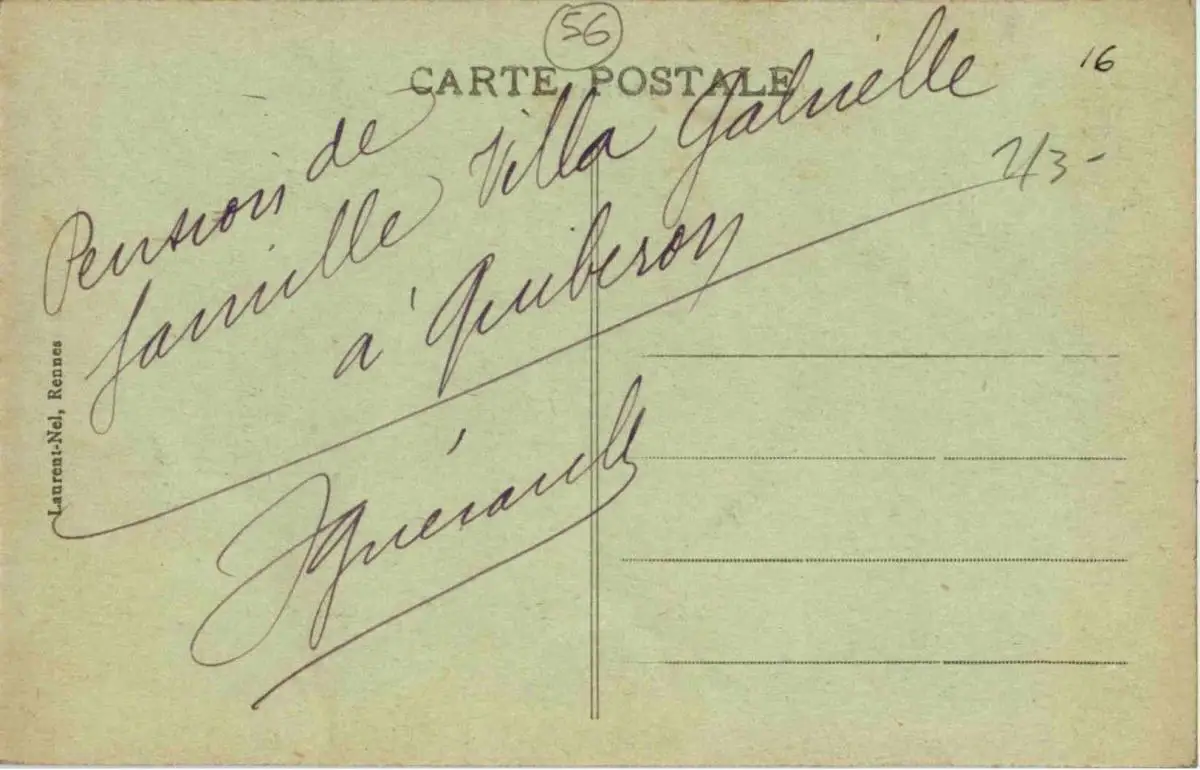 56
16
CARTE POSTALE
Pension de
famille Villa Gabrielle
à Quiberon
Laurent-Nel, Rennes